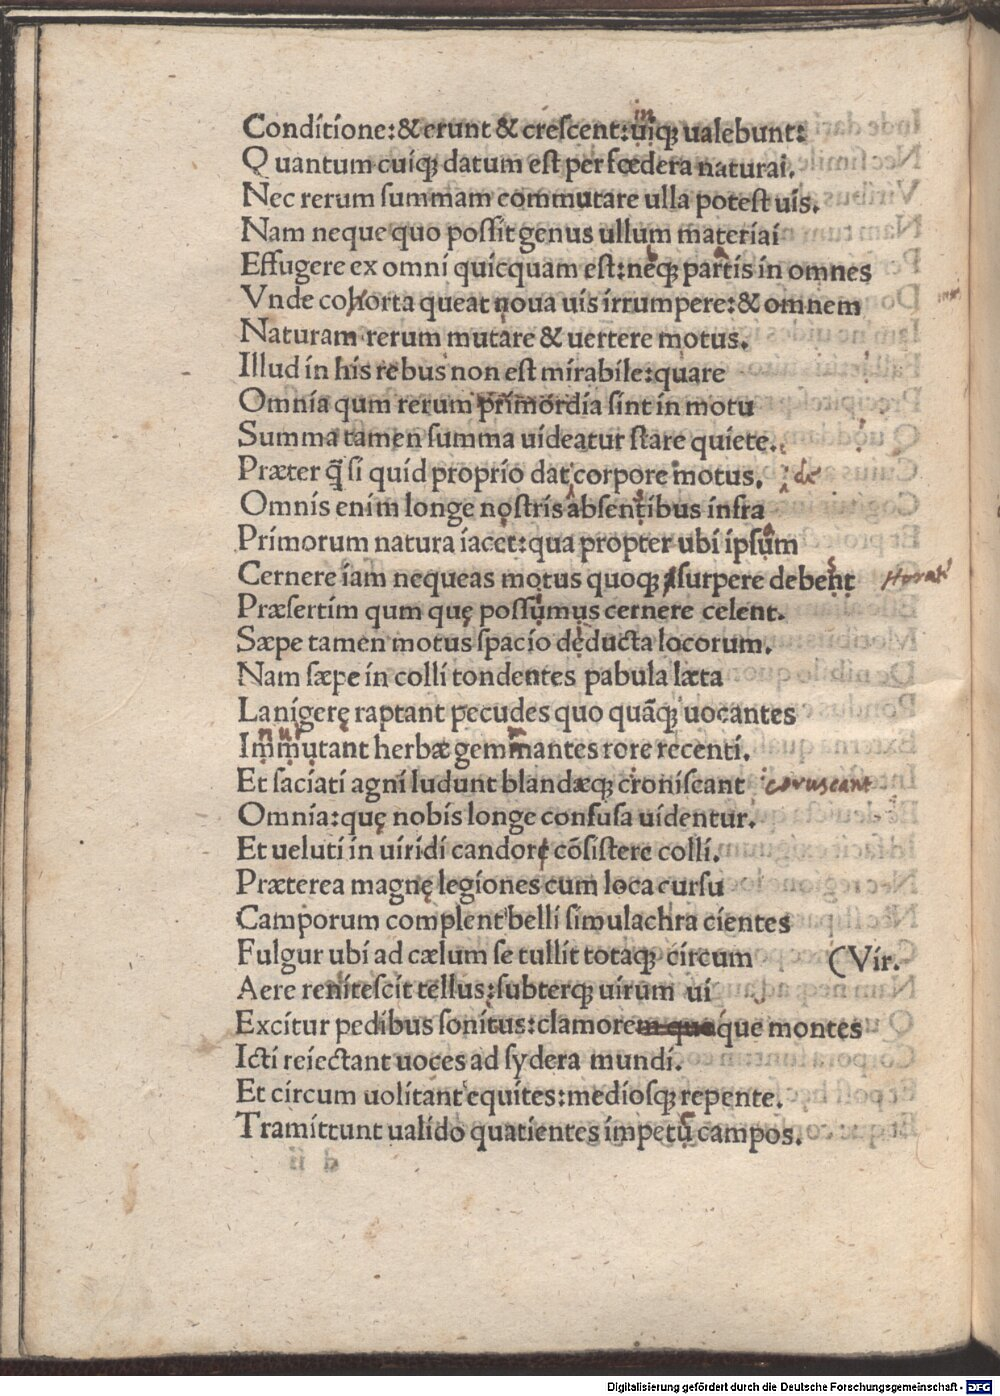 in
Conditione:& erunt & creſcent:uiq; ualebunt:
Quantum cuiq; datum eſt per fœdera naturai.
Nec rerum ſummam commutare ulla poteſt uis.
Nam neque quo poſſit genus ullum materiai
Effugere ex omni quicquam eſt:neq; partis in omnes
Vnde cohorta queat noua uis irrumpere:& omnem
Naturam rerum mutare & uertere motus.
Illud in his rebus non eſt mirabile:quare
Omnia qum rerum primordia ſint in motu
Summa tamen ſumma uideatur ſtare quiete.
Præter q̃ ſi quid proprio dat corpore motus. de
Omnis enim longe noſtris abſentibus infra
Primorum natura iacet:qua propter ubi ipſum
Cernere iam nequeas motus quoq; ſurpere debent
Præſertim qum quę poſſumus cernere celent.
Sæpe tamen motus ſpacio deducta locorum.
Nam ſæpe in colli tondentes pabula læta
Lanigerę raptant pecudes quo quãq; uocantes
Immutant herbæ gemmantes rore recenti.
Et ſaciati agni ludunt blandæq; croniſcant coruscant
Omnia:quę nobis longe confuſa uidentur.
Et ueluti in uiridi candore cõſiſtere colli.
Præterea magnę legiones cum loca curſu
Camporum complent belli ſimulachra cientes
Fulgur ubi ad cælum ſe tullit totaq; circum (Vir.
Aere reniteſcit tellus:ſubterq; uirum ui
Excitur pedibus ſonitus:clamorem quoque montes
Icti reiectant uoces ad ſydera mundi.
Et circum uolitant equites:medioſq; repente.
Tramittunt ualido quatientes impetu campos.
Digitalisierung gefördert durch die Deutsche Forschungsgemeinschaft - DFG